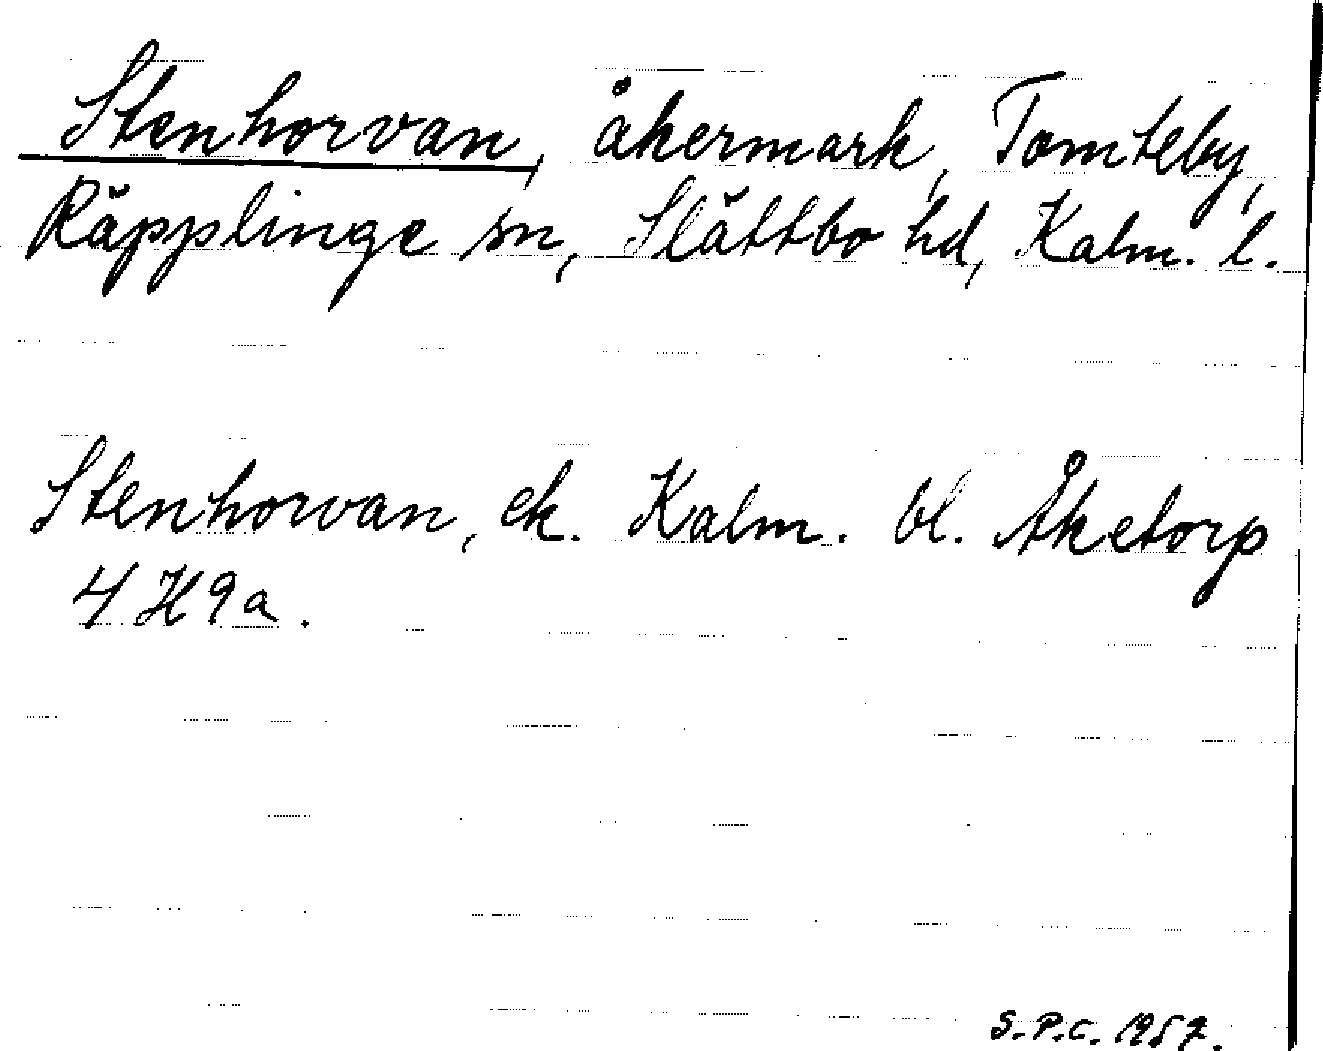 Stenhorvan, åkermark, Tomteby,
Räpplinge sn, Slättbo hd, Kalm. l.
Stenhorvan, ek. Kalm. bl. Åketorp
4 H 9 a.
S.P.C. 1957.